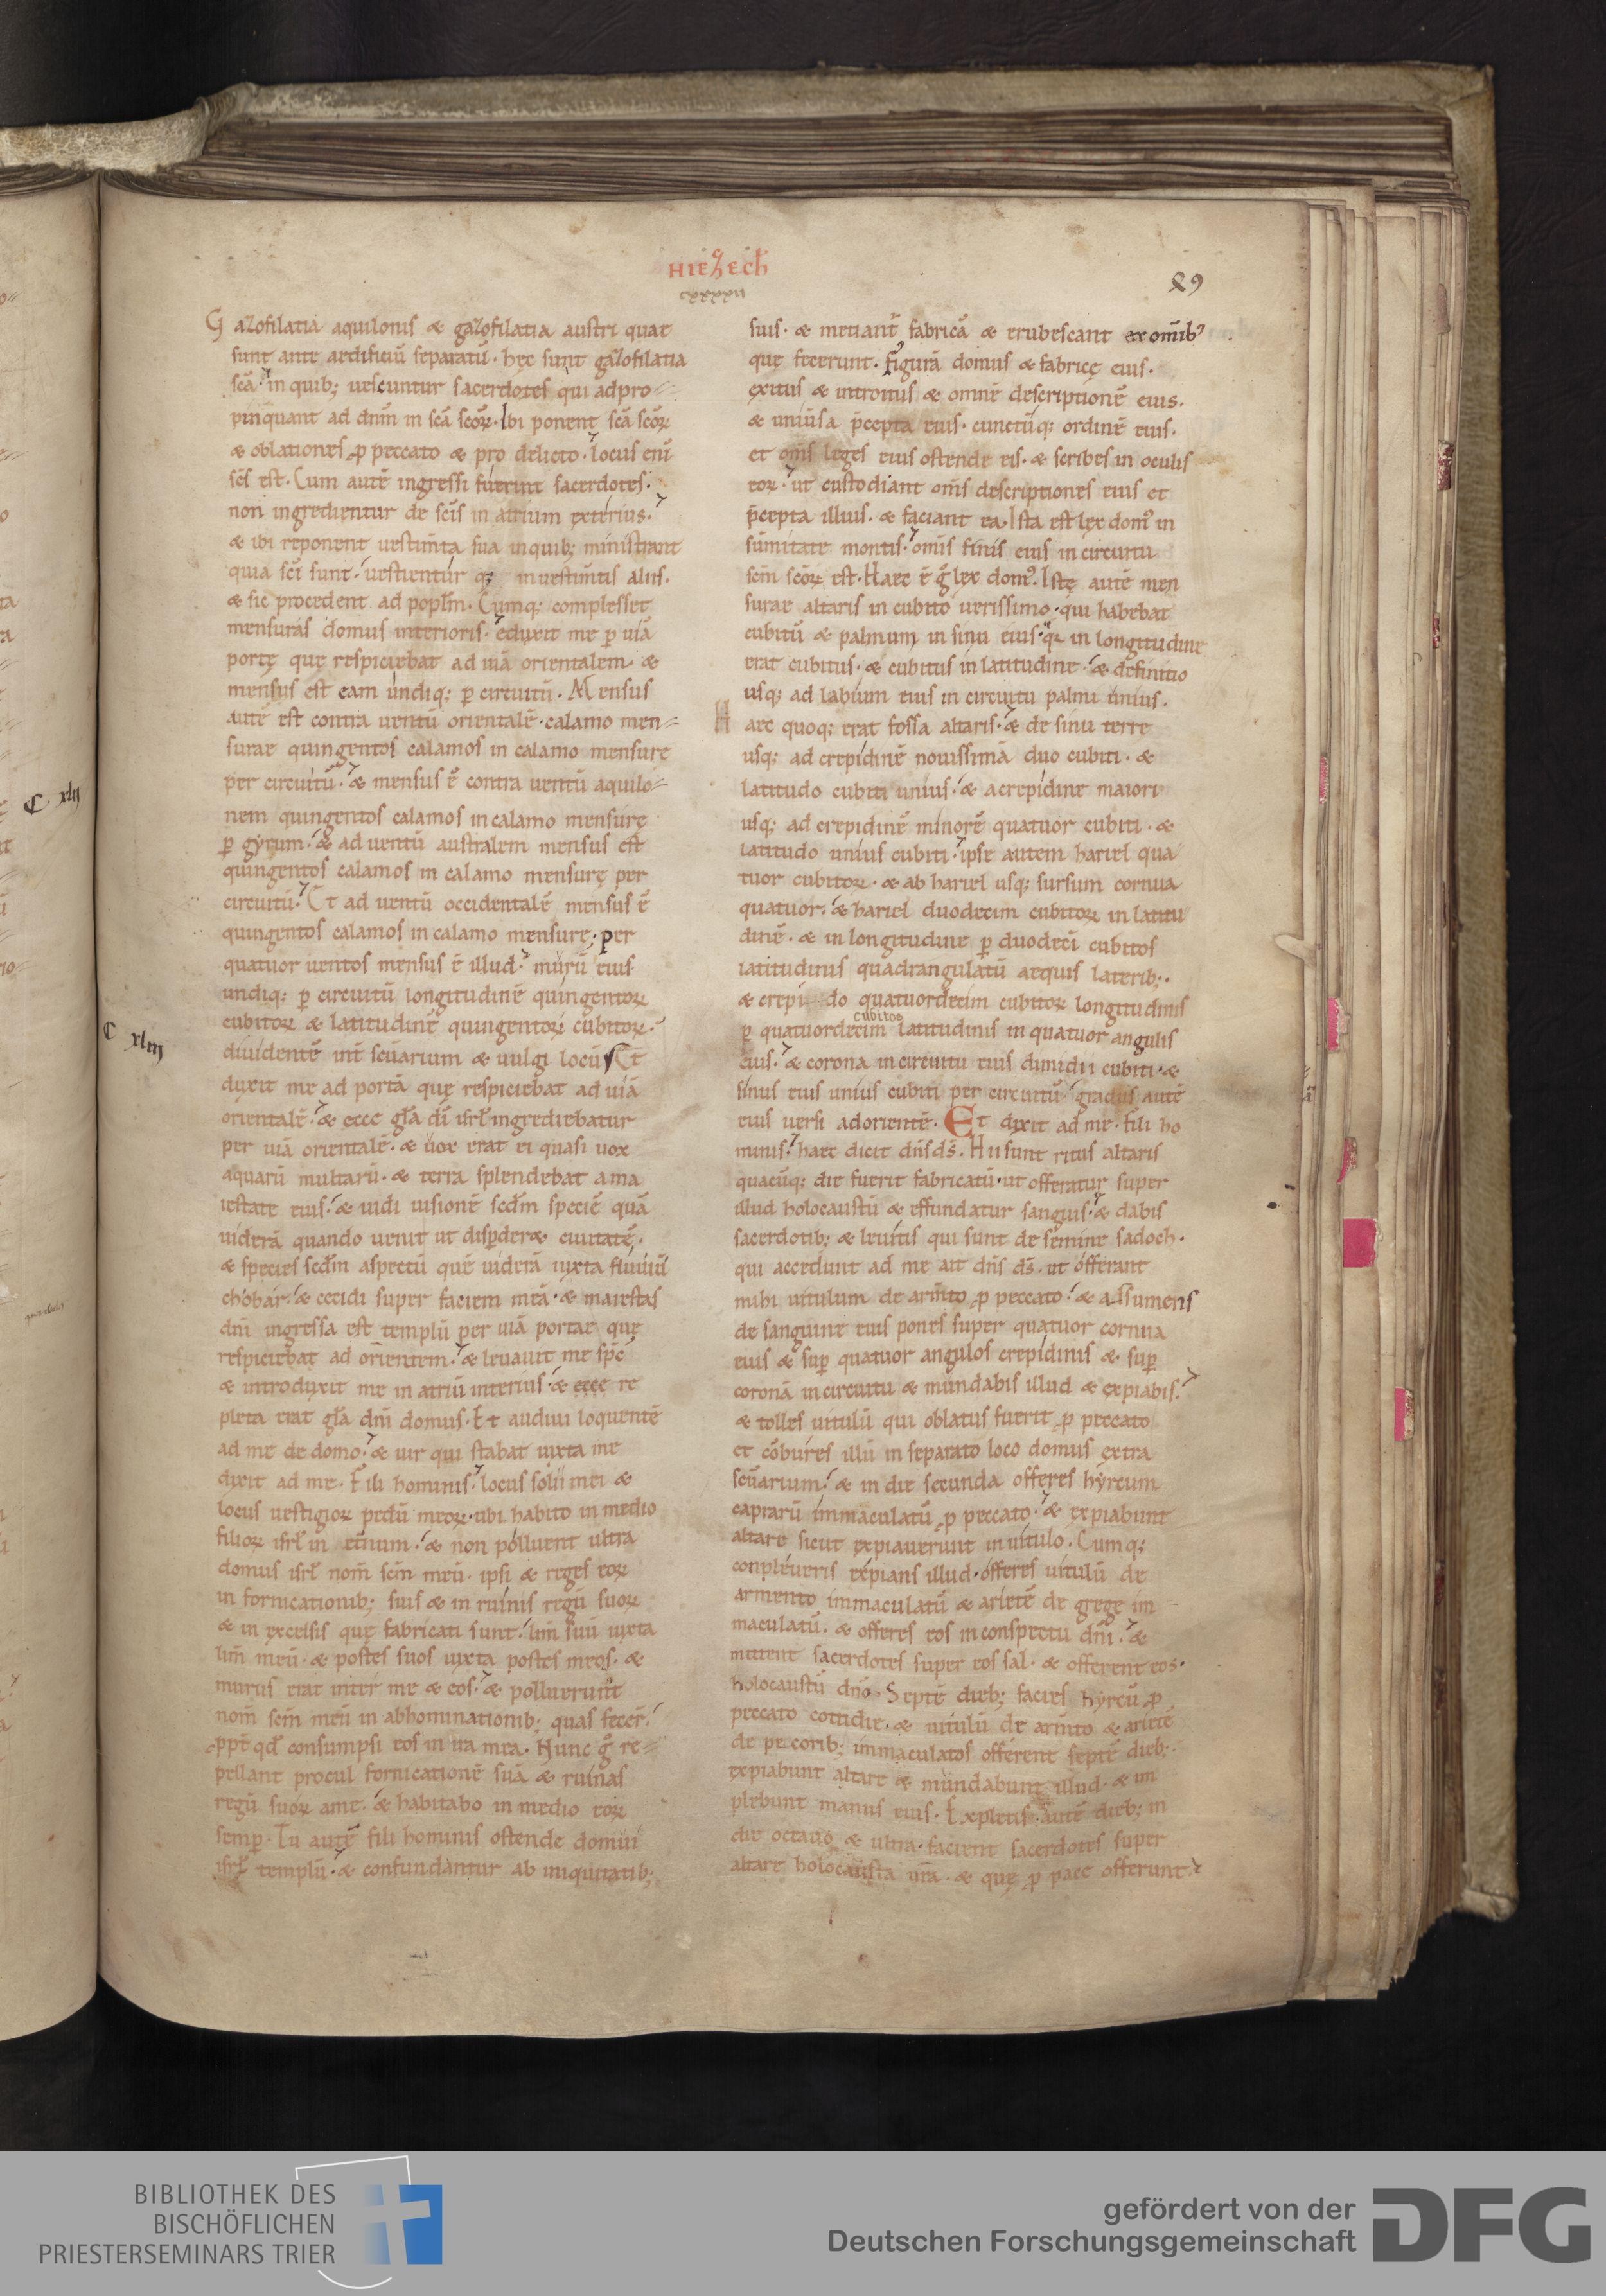 HIEZECH
89
Gazofilatia aquilonis & gazofilatia austri quae
sunt ante aedificiū separatū · hęc sunt gazofilatia
scā · in quib; uescuntur sacerdotes qui adpro
pinquant ad dnm̄ in scā scōꝝ · Ibi ponent scā scōꝝ
& oblationes ꝓ peccato & pro delicto · locus eni
scs̄ est · Cum autē ingressi fuerint sacerdotes ·
non ingredientur de scīs in atrium exterius ·
& ibi reponent uestim̄ta sua in quib; ministrant
quia scī sunt · uestientur q; in uestim̄tis aliis ·
& sic procedent ad popłm · Cumq; complesset
mensuras domus interioris · eduxit me ꝑ uiā
portę quę respiciebat ad uiā orientalem · &
mensus est eam undiq; ꝑ circuitū · Mensus
autē est contra uentū orientalē · calamo men
surae quingentos calamos in calamo mensurę
per circuitū · & mensus ē contra uentū aquilo
nem quingentos calamos in calamo mensurę
ꝑ gyrum · & ad uentū australem mensus est
quingentos calamos in calamo mensurę per
circuitū · Et ad uentū occidentalē mensus ē
quingentos calamos in calamo mensurę · per
quatuor uentos mensus ē illud · murū eius
undiq; ꝑ circuitū longitudinē quingentoꝝ
cubitoꝝ & latitudinē quingentoꝝ cubitoꝝ ·
diuidentē int̄ scūarium & uulgi locū Et
duxit me ad portā quę respiciebat ad uiā
orientalē · & ecce gła dī isrł ingrediebatur
per uiā orientalē · & uox erat ei quasi uox
aquarū multarū · & terra splendebat a ma
iestate eius · & uidi uisionē scdm̄ speciē quā
uiderā quando uenit ut disꝑder& ciuitatē ·
& species scdm̄ aspectū quē uiderā iuxta fluuiū
chobar · & cecidi super faciem meā · & maiestas
dnī ingressa est templū per uiā portae quę
respiciebat ad orientem · & leuauit me spc̄
& introduxit me in atriū interius · & ecce re
pleta erat gła dnī domus · Et audiui loquentē
ad me de domo · & uir qui stabat iuxta me
dixit ad me · Fili hominis · locus solii mei &
locus uestigioꝝ pedū meoꝝ · ubi habito in medio
filioꝝ isrł in et̄num · & non polluent ultra
domus isrł nom̄ scm̄ meū · ipsi & reges eoꝝ
in fornicationib; suis & in ruinis regū suoꝝ
& in excelsis quę fabricati sunt · lim̄ suū iuxta
lim̄ meū · & postes suos iuxta postes meos · &
murus erat inter me & eos · & polluerunt
nom̄ scm̄ meū in abhominationib; quas fecer̄ ·
ꝓpt̄ qđ consumpsi eos in ira mea · Nunc ḡ re
pellant procul fornicationē suā & ruinas
regū suoꝝ a me · & habitabo in medio eoꝝ
semꝑ · Tu autē fili hominis ostende domui
isrł templū · & confundantur ab iniquitatib;
suis · & metiant̄ fabricā & erubescant ex omīb'
que fecerunt · figurā domus & fabricę eius ·
exitus & introitus & omnē descriptionē eius ·
& uniūsa p̄cepta eius · cunctūq; ordinē eius ·
et om̄s leges eius ostende eis · & scribes in oculis
eoꝝ · ut custodiant om̄s descriptiones eius et
p̄cepta illius · & faciant ea · Ista est lex dom' in
sūmitate montis · omīs finis eius in circuitu
scm̄ scōꝝ est · Haec ē ḡ lex dom' · Istę autē men
surae altaris in cubito uerissimo · qui habebat
cubitū & palmum in sinu eius · in longitudine
erat cubitus · & cubitus in latitudine · & definitio
usq; ad labium eius in circuitu palmi unius ·
Haec quoq; erat fossa altaris · & de sinu terre
usq; ad crepidinē nouissimā duo cubiti · &
latitudo cubiti unius · & a crepidine maiori
usq; ad crepidinē minorē quatuor cubiti · &
latitudo unius cubiti · ipse autem hariel qua
tuor cubitoꝝ · & ab hariel usq; sursum cornua
quatuor · & hariel duodecim cubitoꝝ in latitu
dinē · & in longitudine ꝑ duodecī cubitos
latitudinis quadrangulatū aequis laterib; ·
& crepi do quatuordecim cubitoꝝ longitudinis
cubitos
ꝑ quatuordecim latitudinis in quatuor angulis
eius · & corona in circuitu eius dimidii cubiti · &
sinus eius unius cubiti per circuitū · gradus autē
eius uersi ad orientē · Et dixit ad me · Fili ho
minis · haec dicit dn̄s ds̄ · Hii sunt ritus altaris
quacūq; die fuerit fabricatū · ut offeratur super
illud holocaustū & effundatur sanguis · & dabis
sacerdotib; & leuitis qui sunt de semine sadoch ·
qui accedunt ad me ait dn̄s ds̄ · ut offerant
mihi uitulum de arm̄to ꝓ peccato · & adsumens
de sanguine eius pones super quatuor cornua
eius & suꝑ quatuor angulos crepidinis & suꝑ
coronā in circuitu & mundabis illud & expiabis ·
& tolles uitulū qui oblatus fuerit ꝓ peccato
et cōbures illū in separato loco domus extra
scūarium · & in die secunda offeres hyrcum
caprarū immaculatū ꝓ peccato · & expiabunt
altare sicut expiauerunt in uitulo · Cumq;
conpleueris expians illud · offeres uitulū de
armento immaculatū & arietē de grege im
maculatū · & offeres eos in conspectu dnī · &
mittent sacerdotes super eos sal · & offerent eos ·
holocaustū dnō · Septē dieb; facies hyrcū ꝓ
peccato cottidie · & uitulū de arm̄to & arietē
de pecorib; immaculatos offerent septē dieb; ·
expiabunt altare & mundabunt illud · & im
plebunt manus eius · Expletis autē dieb; in
die octauo & ultra · facient sacerdotes super
altare holocausta urā · & quę ꝓ pace offerunt ·
C xlii
C xliii
BIBLIOTHEK DES
BISCHÖFLICHEN
PRIESTERSEMINARS TRIER
gefördert von der
Deutschen Forschungsgemeinschaft
DFG